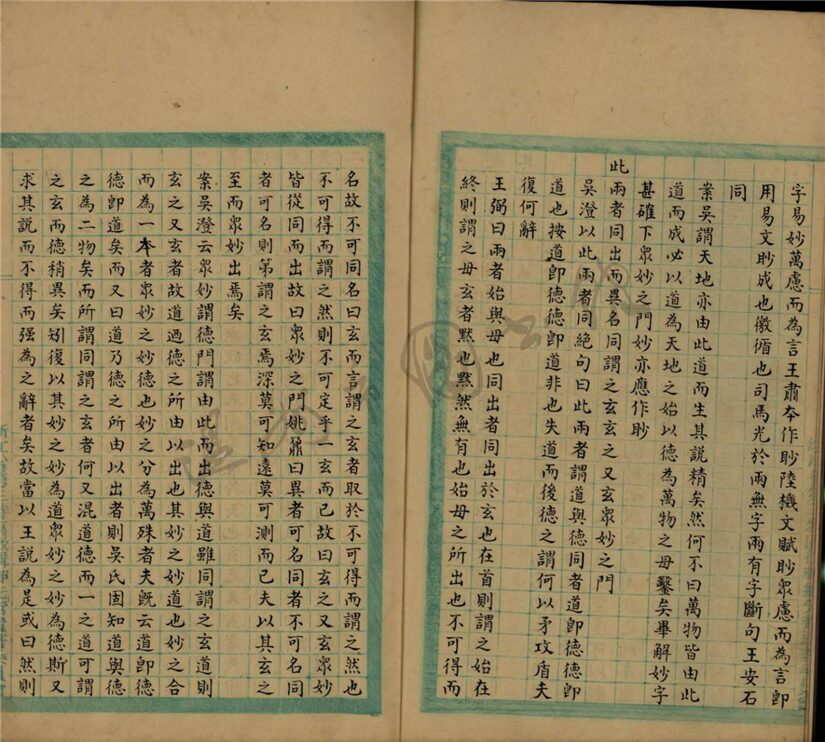 字易妙萬慮而為言王肅夲作眇陸機文賦眇衆慮而為言卽
用易文眇成也徽循也司馬光於兩無字兩有字斷句王安石
同
案吳謂天地亦由此道而生其說精矣然何不曰萬物皆由此
道而成必以道為天地之始以德為萬物之母鑿矣畢解妙字
甚確下衆妙之門妙亦應作眇
此兩者同出而異名同謂之玄玄之又玄衆妙之門
吳澄以此兩者同絕句曰此兩者謂道與德同者道卽德德卽
道也按道卽德德卽道非也失道而後德之謂何以矛攻盾夫
復何辭
王弼曰兩者始與母也同出者同出於玄也在首則謂之始在
終則謂之母玄者黙也黙然無有也始母之所出也不可得而
名故不可同名曰玄而言謂之玄者取於不可得而謂之然也
不可得而謂之然則不可定乎一玄而已故曰玄之又玄衆妙
皆從同而出故曰衆妙之門姚鼐曰異者可名同者不可名同
者可名則第謂之玄焉深莫可知遠莫可測而已夫以其玄之
至而衆妙出焉矣
案吳澄云衆妙謂德門謂由此而出德與道雖同謂之玄道則
玄之又玄者故道迺德之所由以出也其妙之妙道也妙之合
而為一本者衆妙之妙德也妙之分為萬殊者夫旣云道卽德
德卽道矣而又曰道乃德之所由以出者則吳氏固知道與德
之為二物矣而所謂同謂之玄者何又混道德而一之道可謂
之玄而德稍異矣矧復以其妙之妙為道衆妙之妙為德斯又
求其說而不得而强為之辭者矣故當以王說為是或曰然則